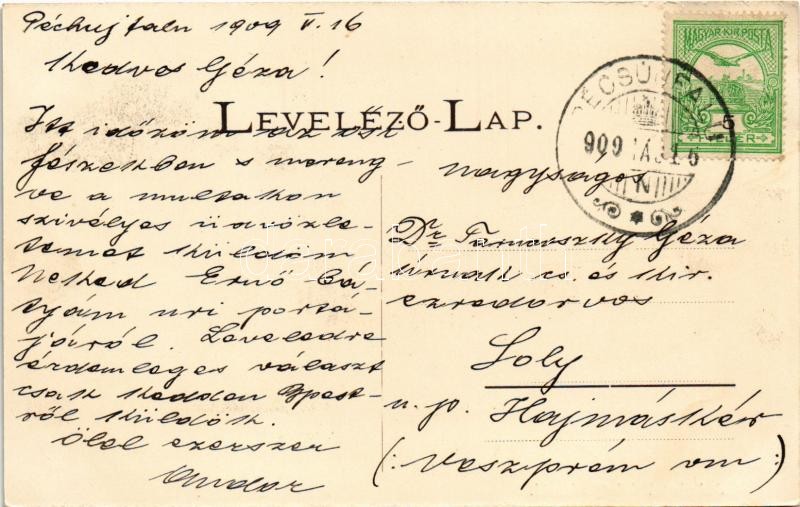 Péchujfalu 1909 V. 16
Kedves Géza!
LEVELÉZŐ-LAP.
Itt időzöm az ősi
fészekben s mereng-
ve a multakon
szivélyes üdvözle-
temet küldöm
Neked Ernő bá-
tyám uri portá-
járól. Leveledre
érdemleges választ
csak kedden Bpest-
ről küldök.
Ölel ezerszer
Andor
MAGYAR KIR. POSTA
5
FILLÉR
PÉCSÚJFALU
909 MÁJ 16
N
nagyságos
Dr Tarnovszky Géza
úrnak cs. és kir.
ezredorvos
Soly
u. p. Hajmáskér
(: Veszprém vm :)